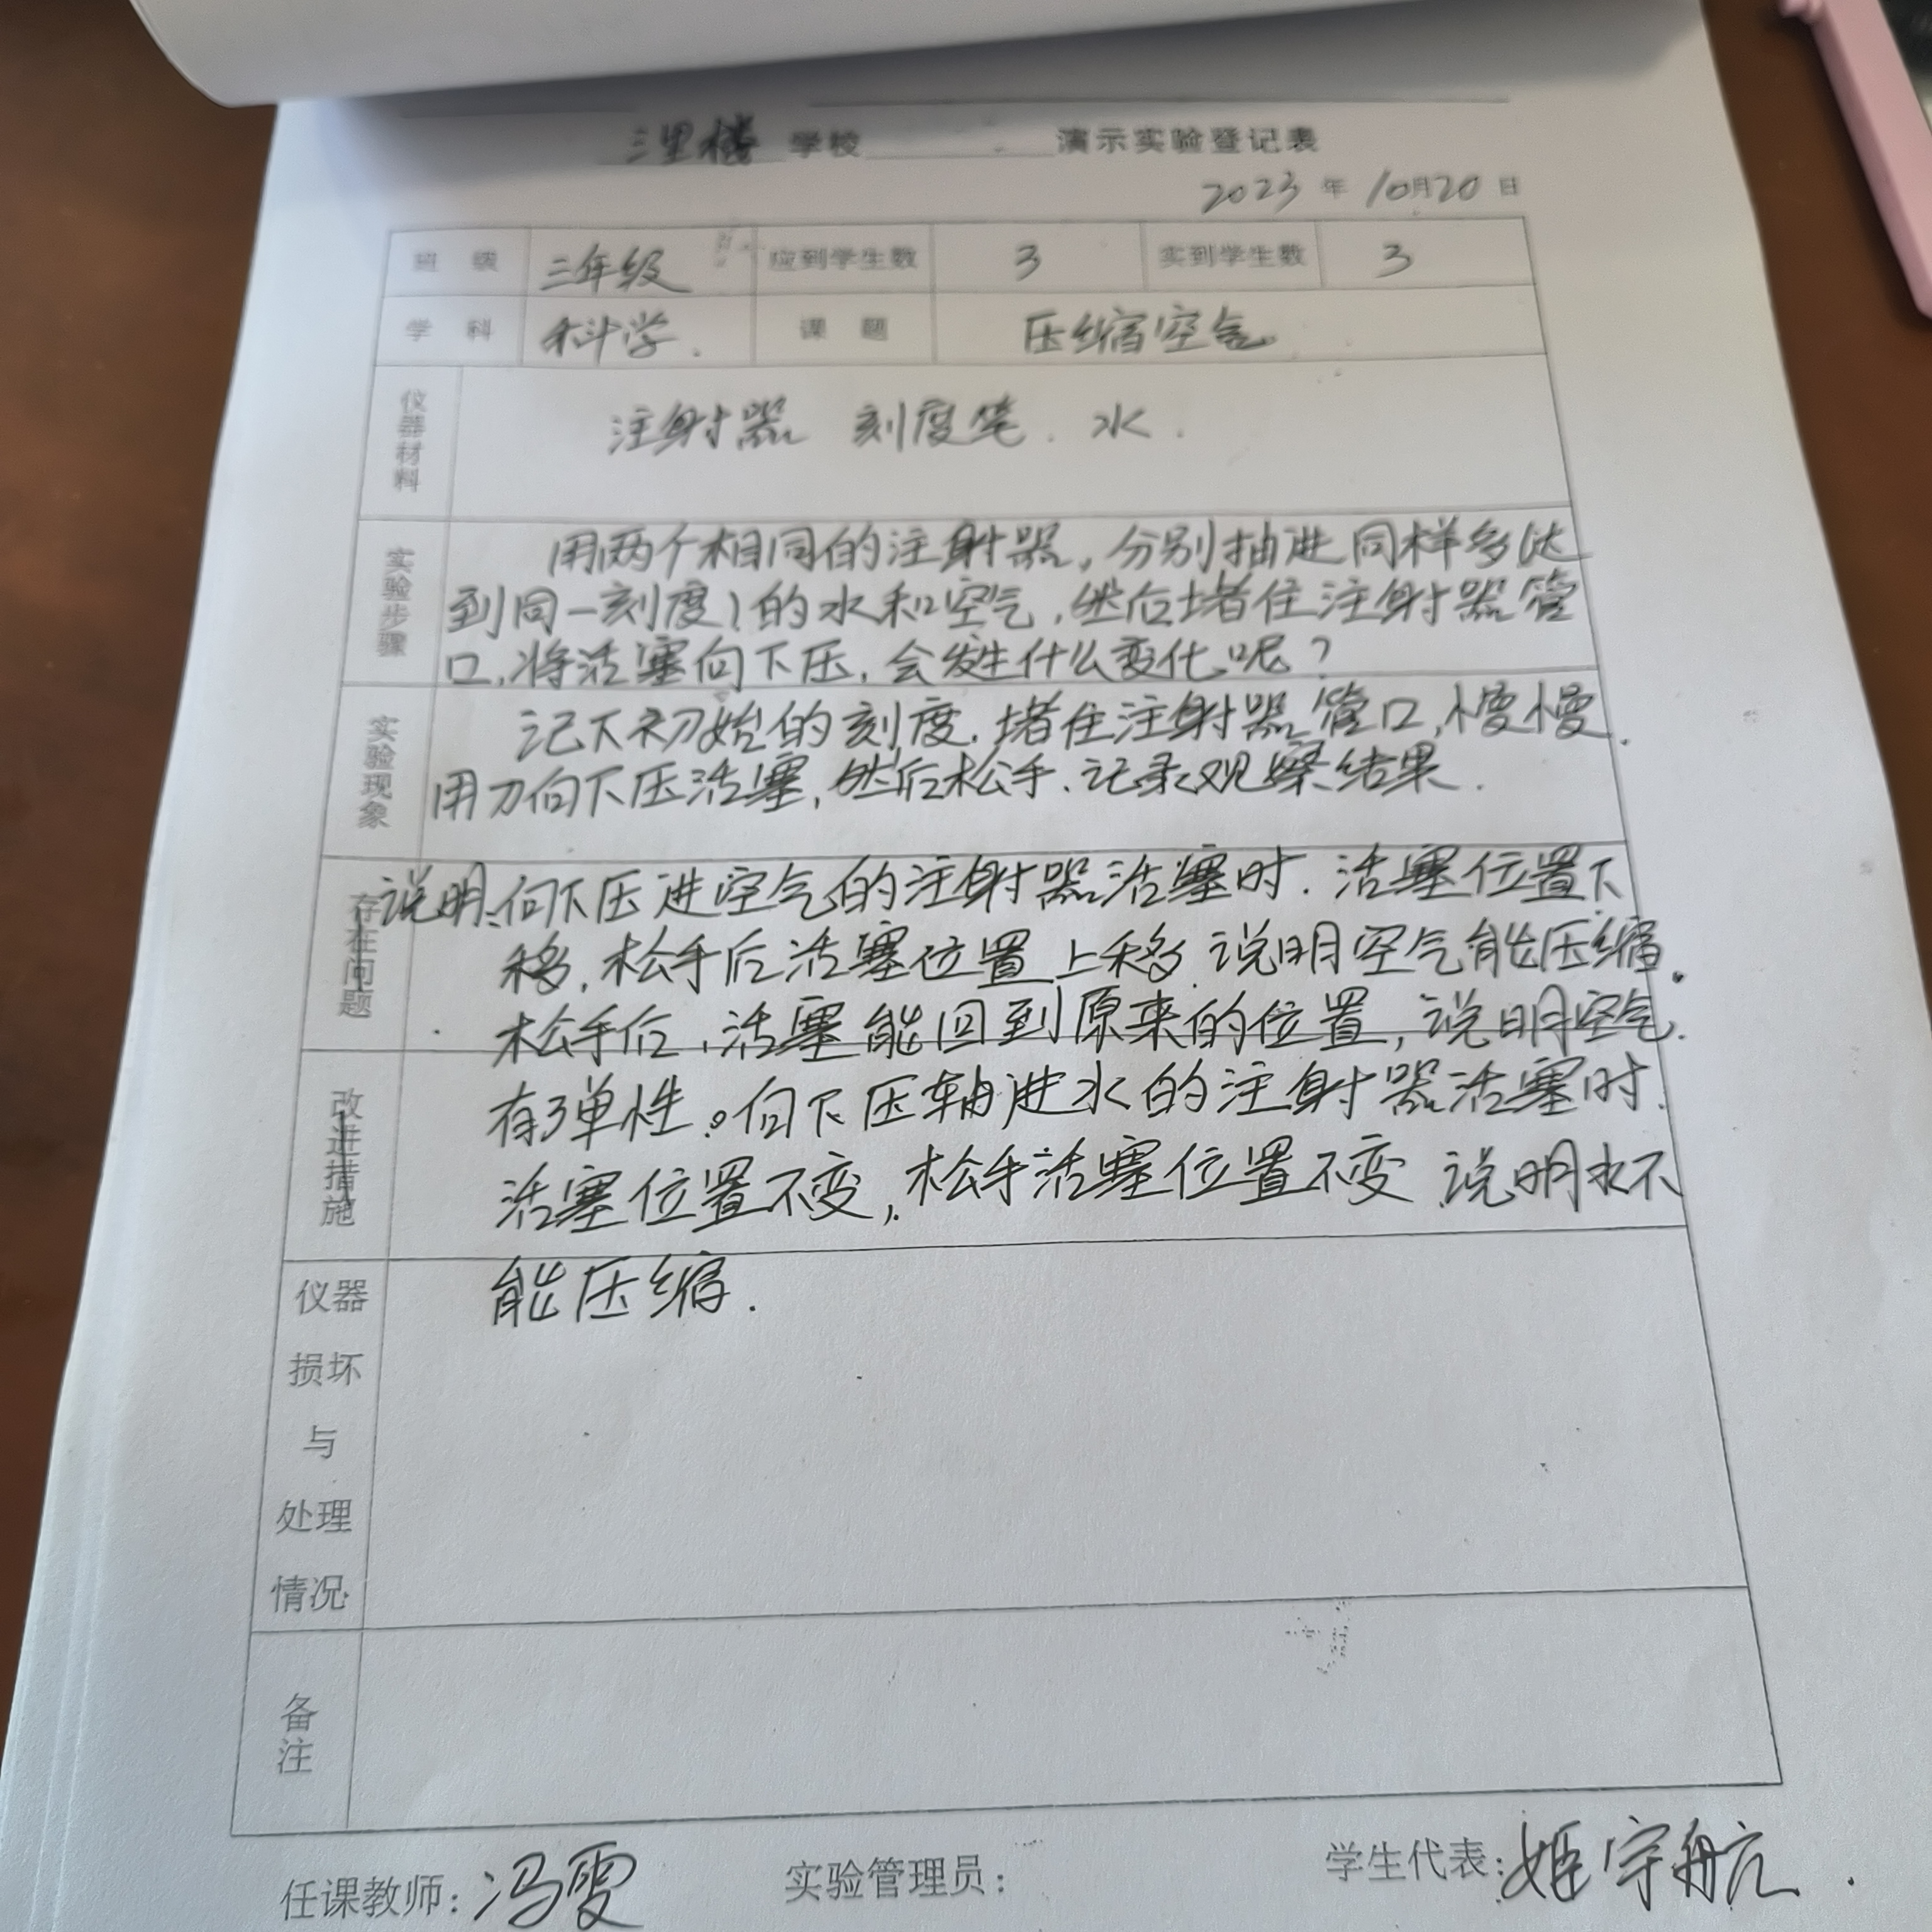 三里楼 学校 演示实验登记表
2023 年 10月20 日
班 级 三年级 应到学生数 3 实到学生数 3
学 科 科学. 课 题 压缩空气
仪器材料 注射器 刻度笔. 水.
实验步骤
用两个相同的注射器,分别抽进同样多(达
到同一刻度)的水和空气,然后堵住注射器管
口,将活塞向下压,会发生什么变化呢?
实验现象
记下初始的刻度.堵住注射器管口,慢慢
用力向下压活塞,然后松手.记录观察结果.
存在问题
说明:向下压进空气的注射器活塞时.活塞位置下
移,松手后活塞位置上移.说明空气能压缩.
松手后,活塞能回到原来的位置,说明空气
改进措施
有弹性。向下压抽进水的注射器活塞时.
活塞位置不变,松手活塞位置不变.说明水不
能压缩.
仪器
损坏
与
处理
情况
备注
任课教师: 冯雯 实验管理员: 学生代表: 姬宇航.